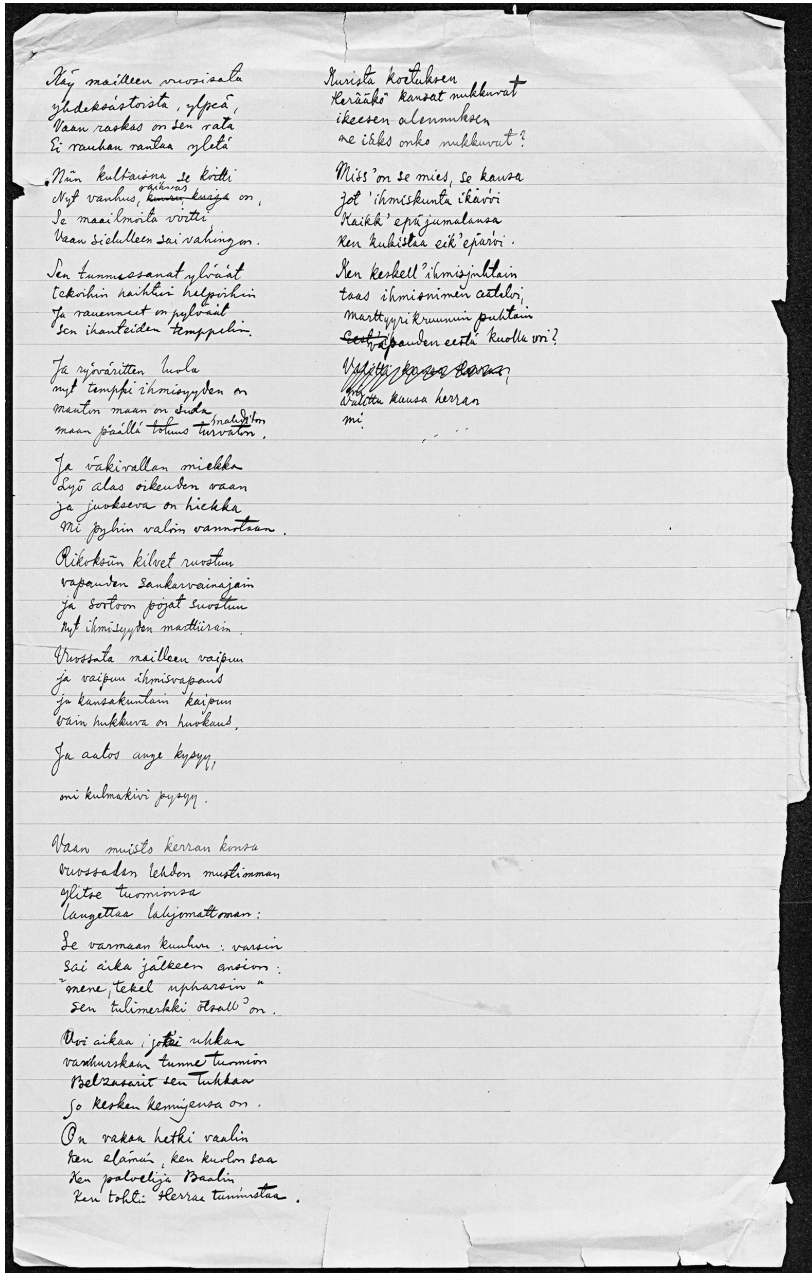 Käy mailleen vuosisata
yhdeksästoista, ylpeä,
Vaan raskas on sen rata
Ei rauhan rantaa yletä
Niin kultaisna se koitti
Nyt vanhus, raihnas on,
Se maailmoita voitti
Vaan sielulleen sai vahingon.
Sen tunnussanat ylväät
tekoihin haihtui helpoihin
Ja rauenneet on pylväät
sen ihanteiden temppelin.
Ja ryöväritten luola
nyt temppi ihmisyyden on
mauton maan on suola
maan päällä totuus turvaton.
Ja väkivallan miekka
Lyö alas oikeuden vaan
ja juokseva on hiekka
Mi pyhin valoin vannotaan.
Rikoksiin kilvet ruostuu
vapauden sankarvainajain
ja sortoon pojat suostuu
nyt ihmisyyden marttiirain.
Vuossata mailleen vaipuu
ja vaipuu ihmisvapaus
ja kansakuntain kaipuu
vain hukkuva on huokaus.
Ja aatos ange kysyy,
oni kulmakivi pysyy.
Vaan muisto kerran konsa
vuossadan lehden mustimman
ylitse tuomionsa
langettaa lahjomattoman:
Se varmaan kuuluu: varsin
sai aika jälkeen ansion:
"mene, tekel upharsin"
sen tulimerkki otsall' on.
Voi aikaa, jok'ei uhkaa
vanhurskaan tunne tuomion
Belzasarit sen tuhkaa
Jo kesken kemujensa on.
On vakaa hetki vaalin
ken elämän, ken kuolon saa
Ken palvelija Baalin
Ken tohtii Herraa tunnustaa.
Kurista koetuksen
Herääkö kansat nukkuvat
ikeesen alennuksen
ne iäks onko nukkuvat?
Miss' on se mies, se kansa
Jot' ihmiskunta ikävöi
Kaikk' epäjumalansa
ken kukistaa eik' epäröi.
Ken keskell' ihmisjuhtain
taas ihmisnimen
marttyyrikruunuin puhtain
vapauden eestä kuolla voi?
Valittu kansa herran
mi